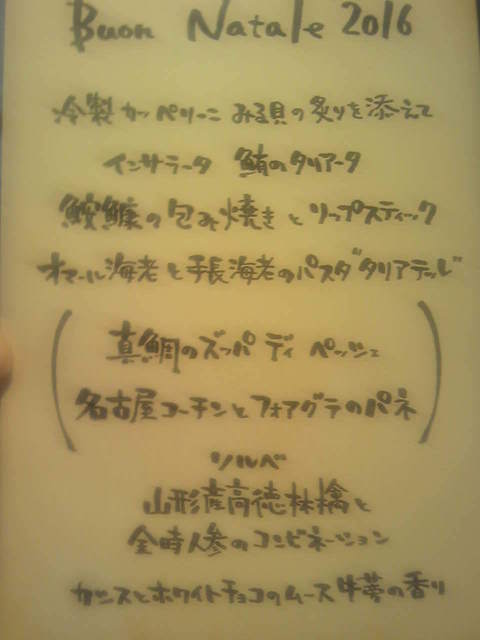 Buon Natale 2016
冷製カッペリーニ みる貝の炙りを添えて
インサラータ 鮪のタリアータ
鮟鱇の包み焼きとリップスティック
オマール海老と手長海老のパスタ"タリアテッレ"
(真鯛のズッパ ディ ペッシェ
名古屋コーチンとフォアグラのパネ)
ソルベ
山形産高徳林檎と
金時人参のコンビネーション
カシスとホワイトチョコのムース 牛蒡の香り